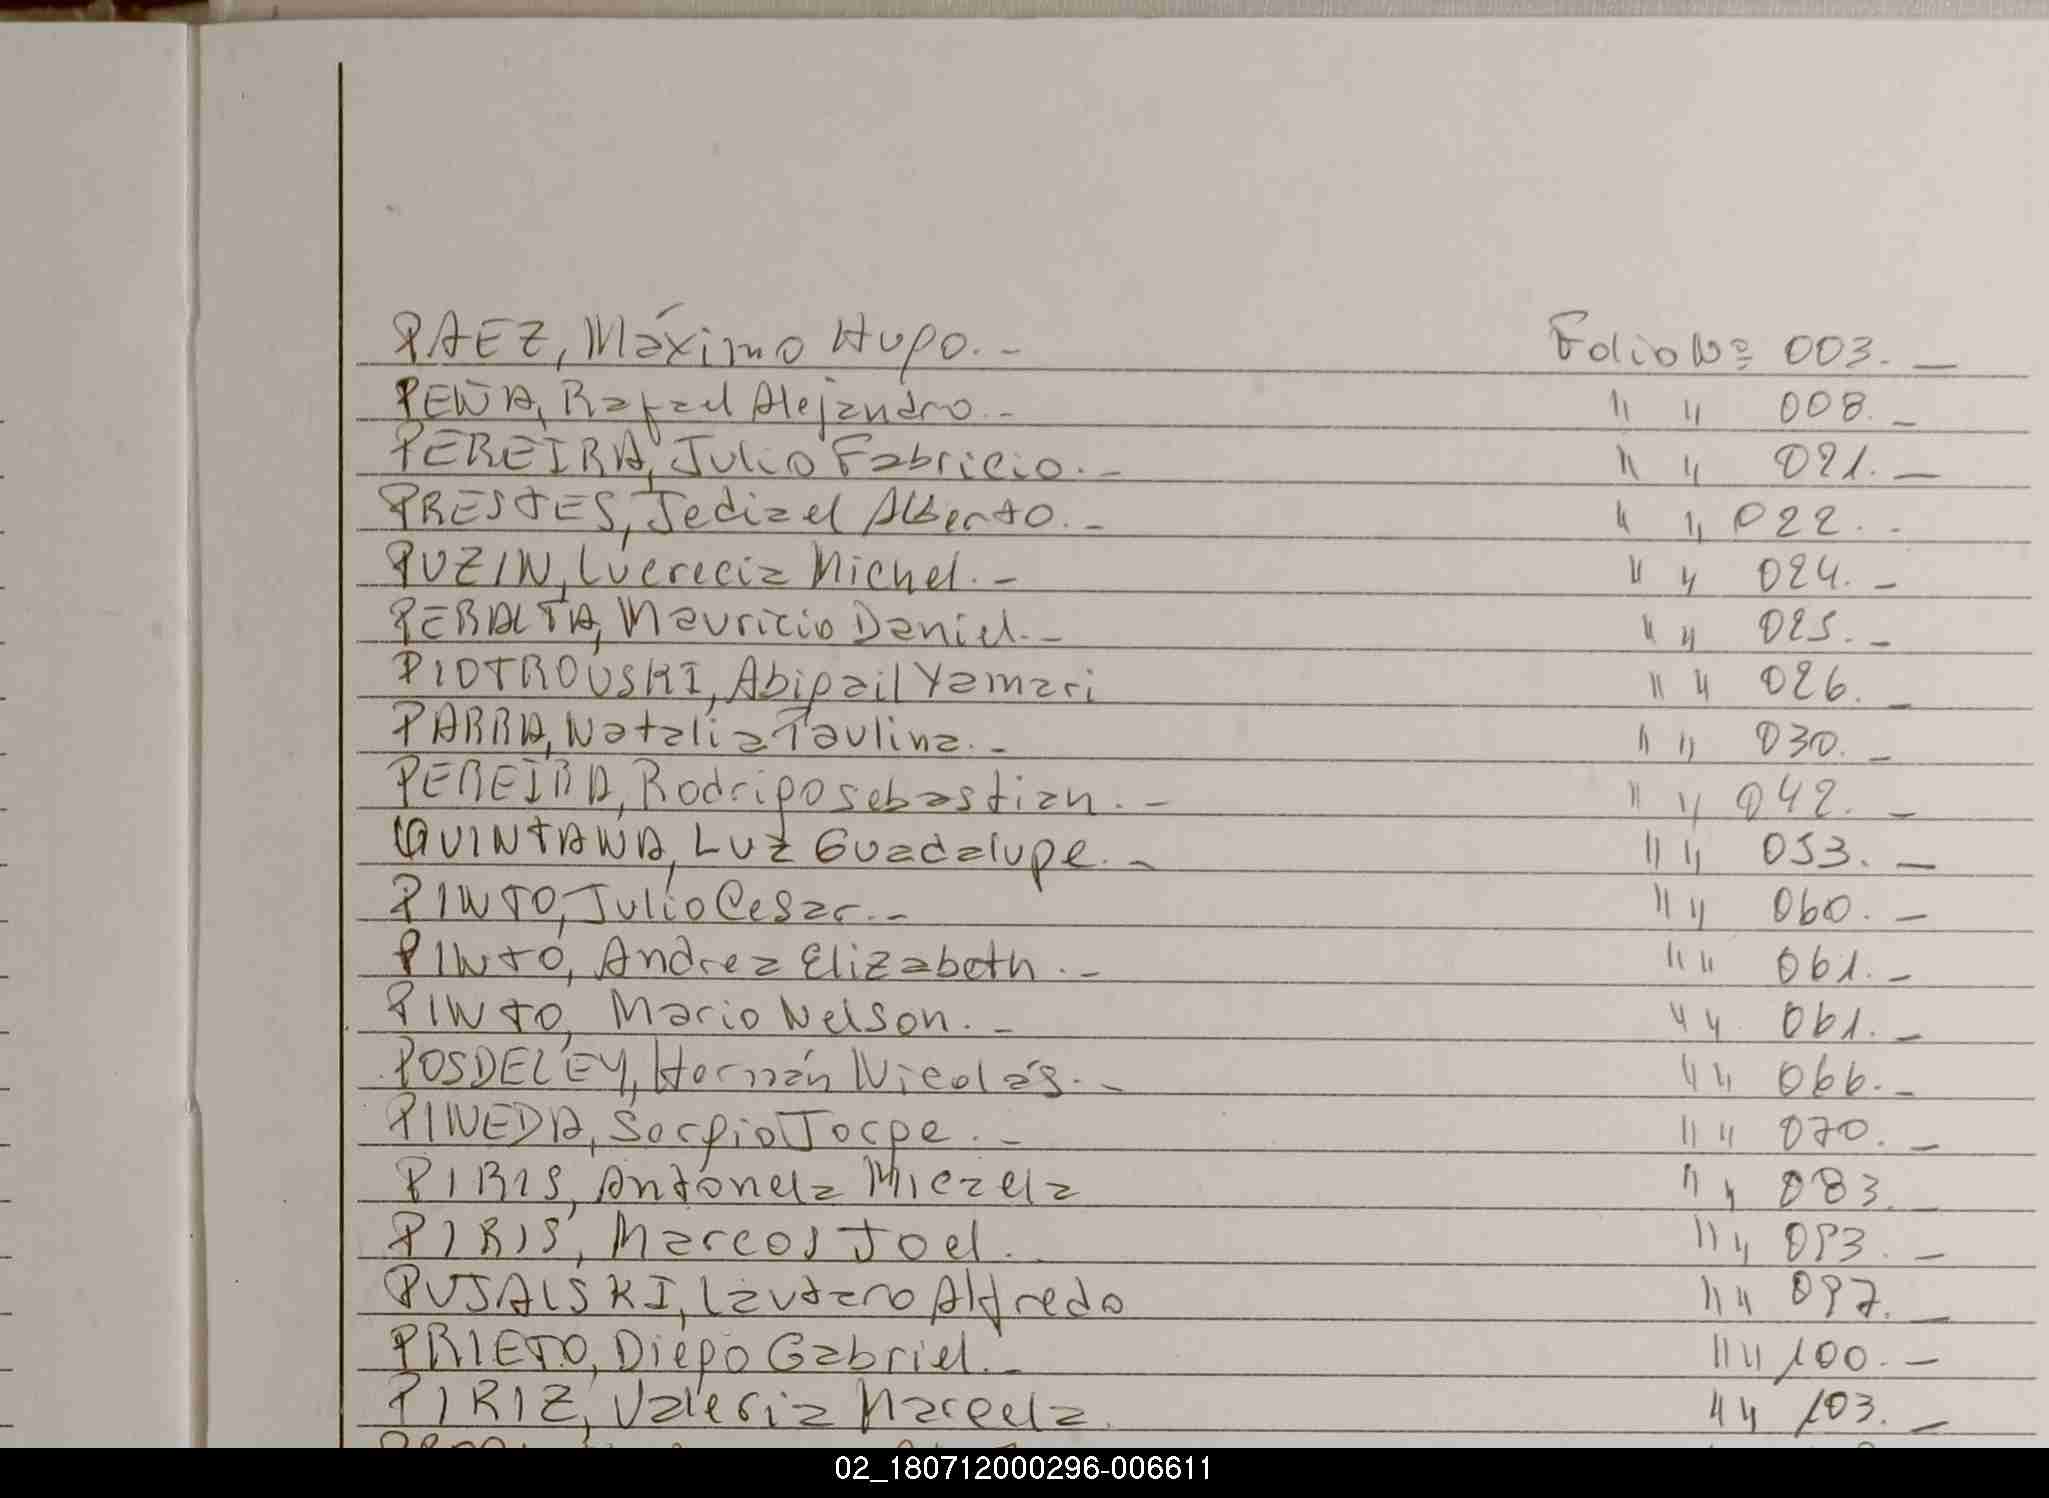 PAEZ, Máximo Hugo. - Folio Nº 003. -
PEÑA, Rafael Alejandro. - " " 008. -
PEREIRA, Julio Fabricio. - " " 021. -
PRESTES, Jediael Alberto. - " " 022. -
PUZIN, Lucrecia Michel. - " " 024. -
PERALTA, Mauricio Daniel. - " " 025. -
PIOTROUSKI, Abigail Yamari " " 026. -
PARRA, Natalia Paulina. - " " 030. -
PEREIRA, Rodrigo Sebastian. - " " 042. -
QUINTANA, Luz Guadalupe. - " " 053. -
PINTO, Julio Cesar. - " " 060. -
PINTO, Andrea Elizabeth. - " " 061. -
PINTO, Mario Nelson. - " " 061. -
POSDELEY, Hernán Nicolás. - " " 066. -
PINEDA, Sergio Jorge. - " " 070. -
PIRIS, Antonela Micaela " " 083. -
PIRIS, Marcos Joel. " " 093. -
PUJALSKI, Lautaro Alfredo " " 097. -
PRIETO, Diego Gabriel. - " " 100. -
PIRIZ, Valeria Marcela. " " 103. -
02_180712000296-006611